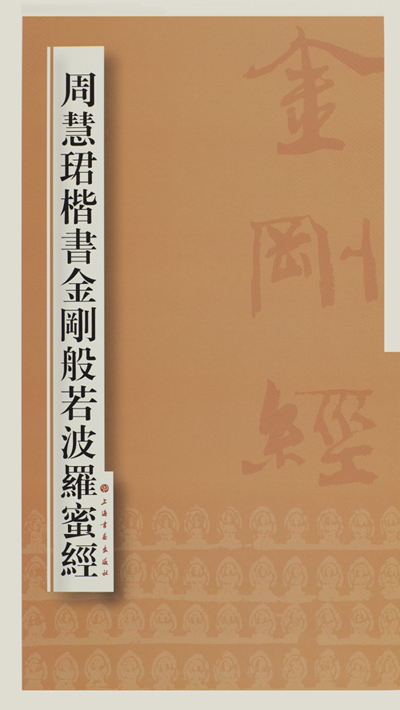 金剛經
周慧珺楷書金剛般若波羅蜜經
上海書畫出版社